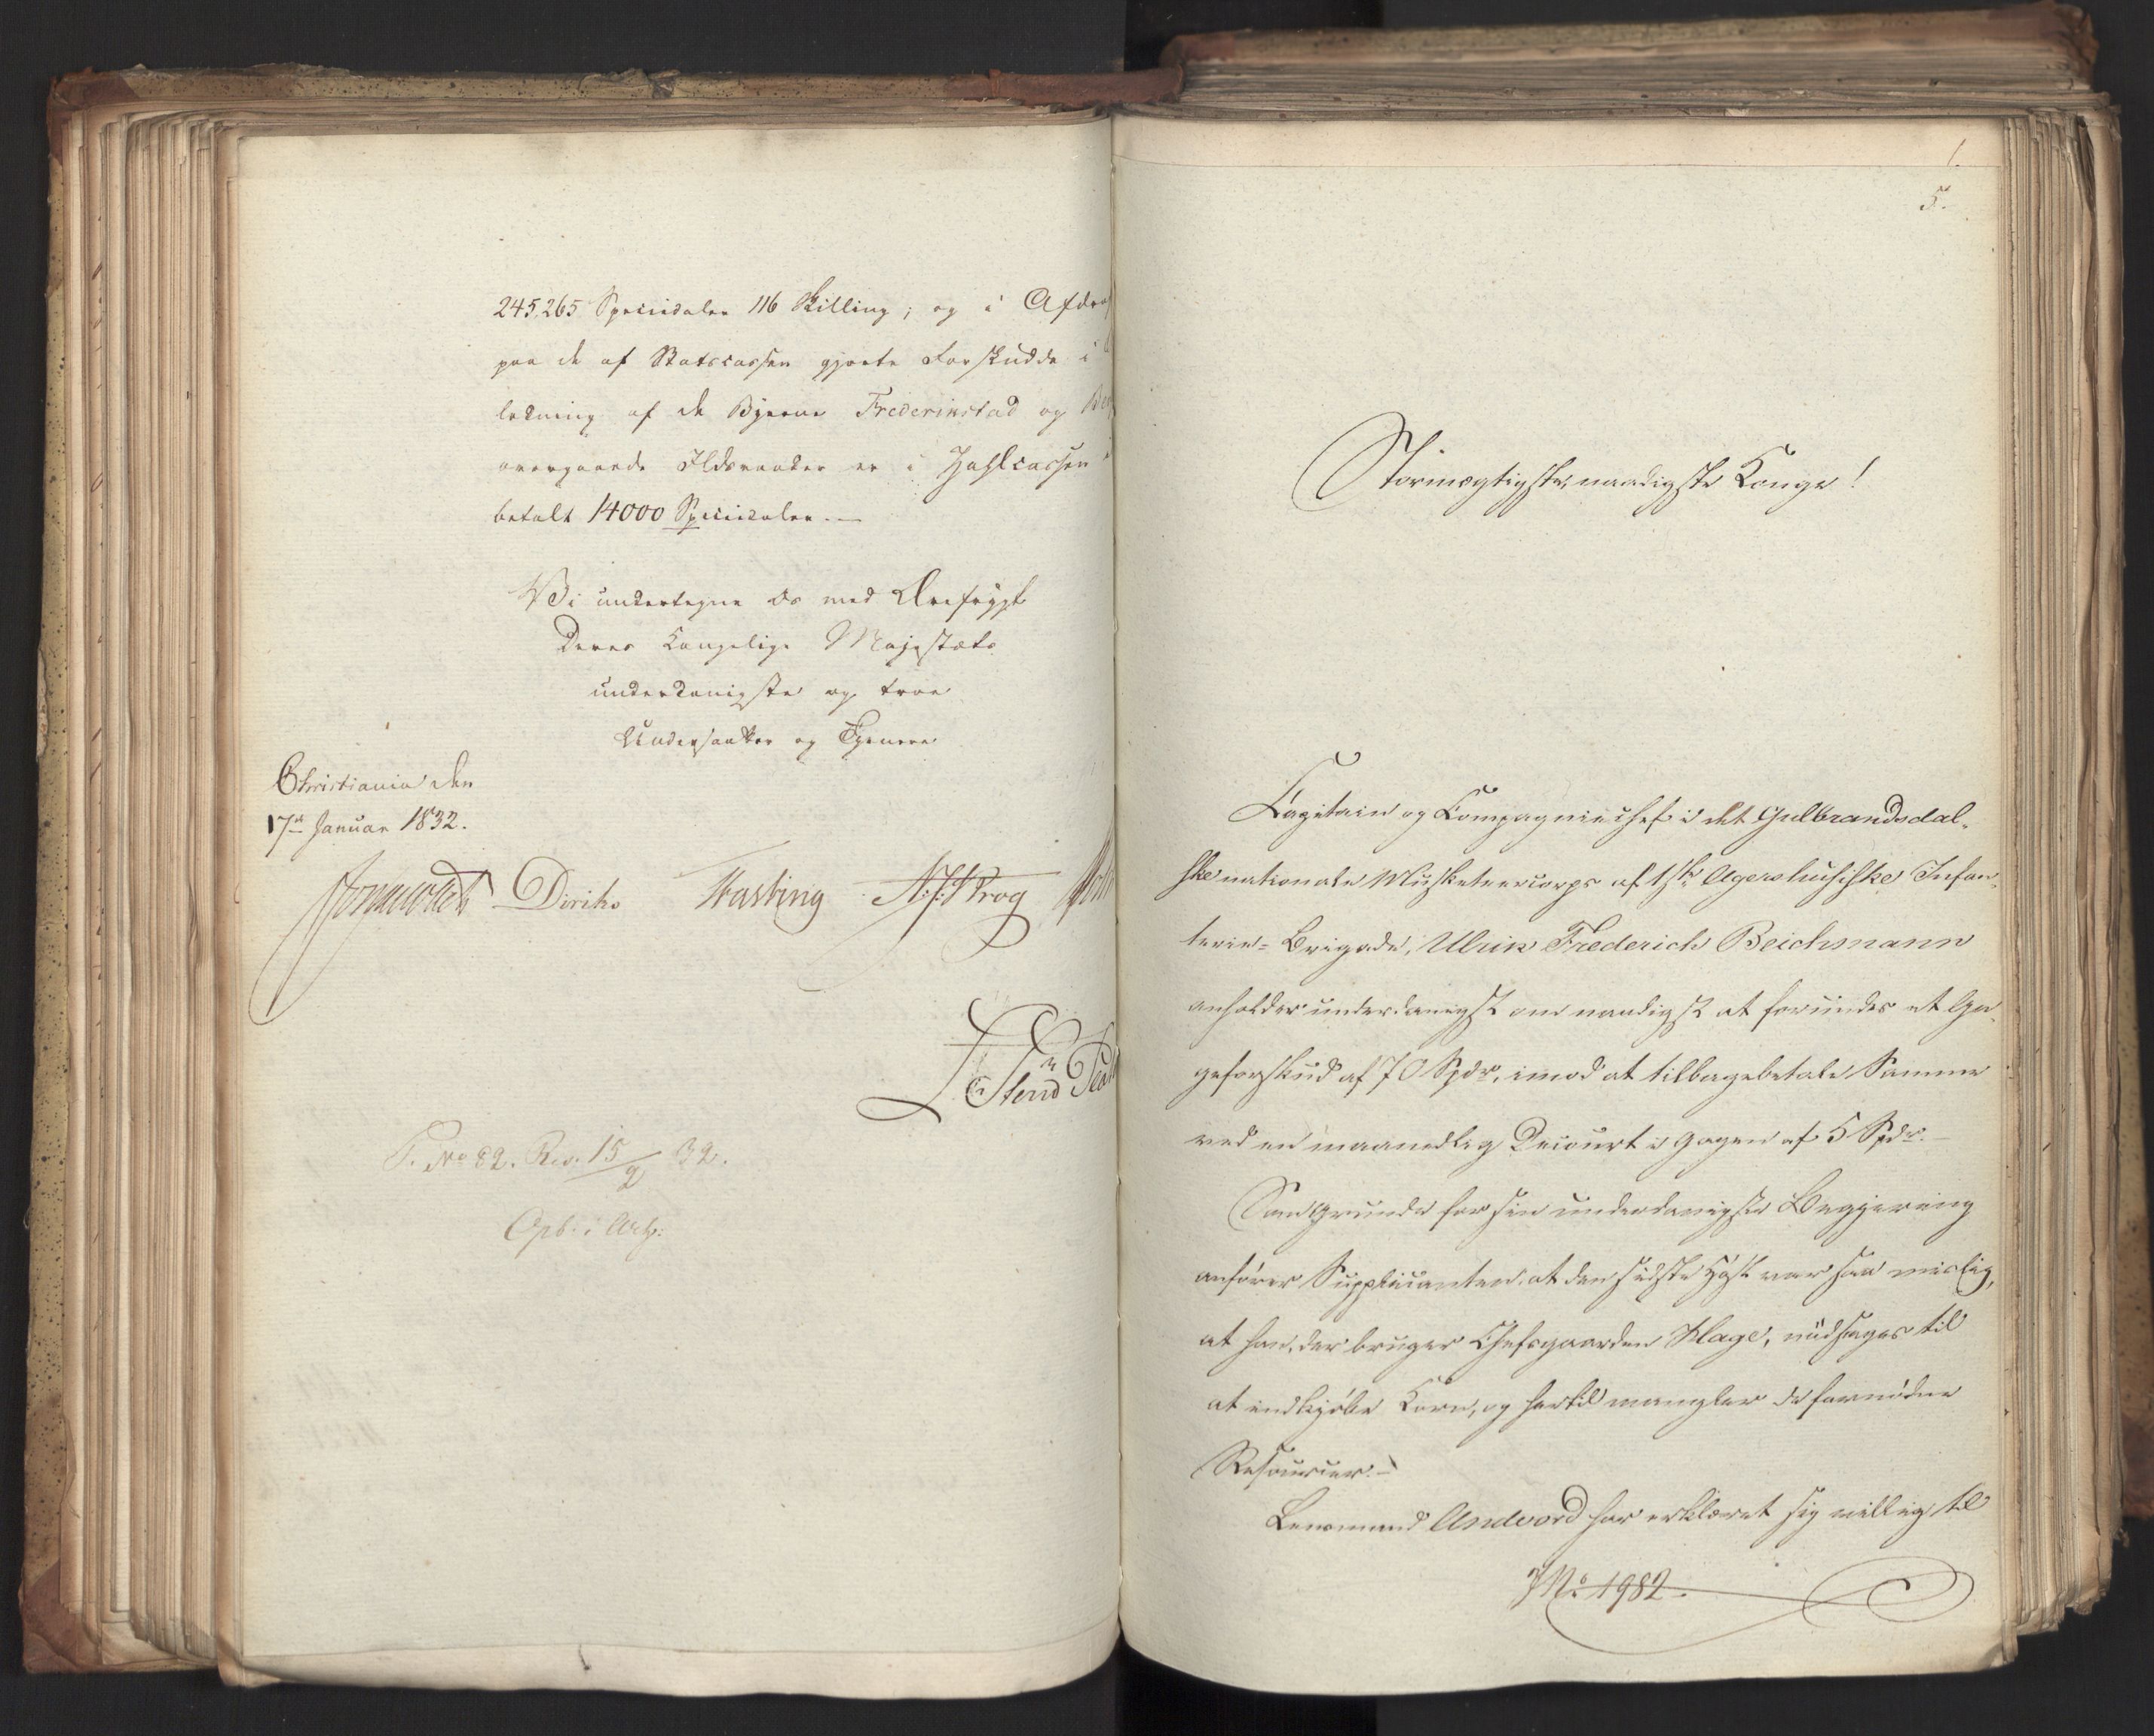 245,265 Speciedaler 116 Skilling; og i Afdrag
paa de af Statscassen gjorte Forskudde i
ledning af de Byerne Frederikstad og
overgaaede Ildsvaader er i Zahlcassen
betalt 14000 Speciedaler.—
Vi undertegne os med Ærefrygt
Deres Kongelige Majestæts
underdanigste og troe
Undersaatter og Tjenere
Christiania den
17de Januar 1832.
Diriks Fasting Krog
P. No 82. Res. 15/2 32.
1.
5.
Stormægtigste, naadigste Konge!
Capitain og Compagniechef i det Gulbrandsdal-
ske nationale Musketeercorps af 1ste Agershusiske Infan-
terie-Brigade, Ulrik Frederich Beichmann
anholder underdanigst om naadigst at forundes et Ga-
geforskud af 70 Spdr, imod at tilbagebetale Samme
ved en maanedlig Decourt i Gagen af 5 Spdr.—
Som Grunde for sin underdanigste Begjering
anförer Supplicanten, at den sidste Høst var saa mislig,
at han, der bruger Chefsgaarden Klage, nödsages til
at indkjöbe Korn, og hertil mangler de fornödne
Resourcer.—
Lensmand Andvord har erklæret sig villig til
JNo 1982.